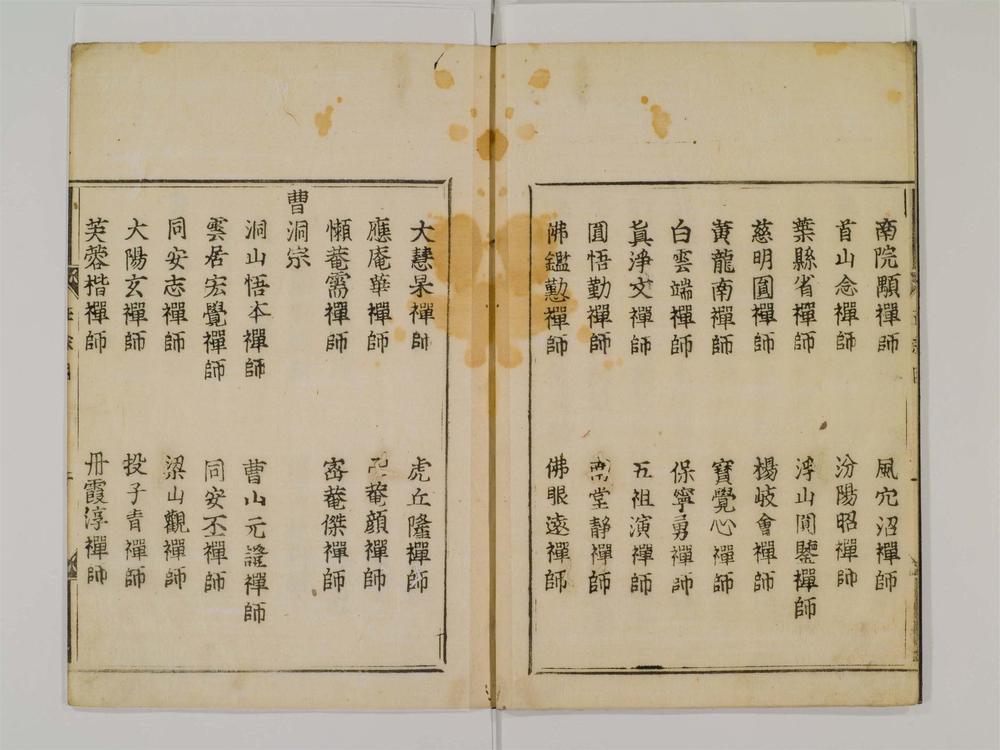 南院顒禪師 風穴沼禪師
首山念禪師 汾陽昭禪師
葉縣省禪師 浮山圓鑒禪師
慈明圓禪師 楊岐會禪師
黃龍南禪師 寶覺心禪師
白雲端禪師 保寧勇禪師
眞淨文禪師 五祖演禪師
圓悟勤禪師 堂靜禪師
佛鑑懃禪師 佛眼遠禪師
大慧杲禪師 虎丘隆禪師
應庵華禪師 菴顔禪師
懶菴需禪師 密菴傑禪師
曹洞宗
洞山悟本禪師 曹山元證禪師
雲居宏覺禪師 同安丕禪師
同安志禪師 梁山觀禪師
大陽玄禪師 投子青禪師
芙蓉楷禪師 丹霞淳禪師